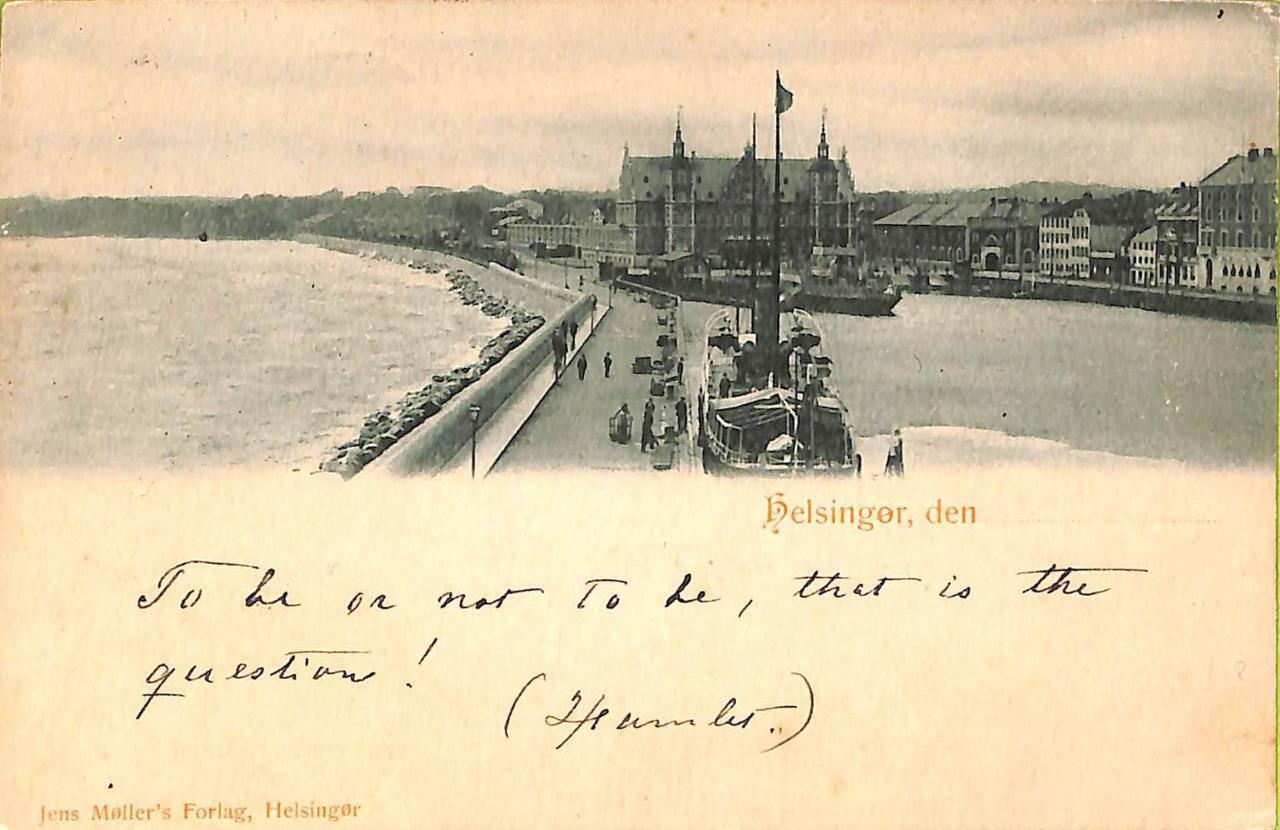 Helsingør, den
To be or not to be, that is the
question!
(Hamlet.)
Jens Møller's Forlag, Helsingør